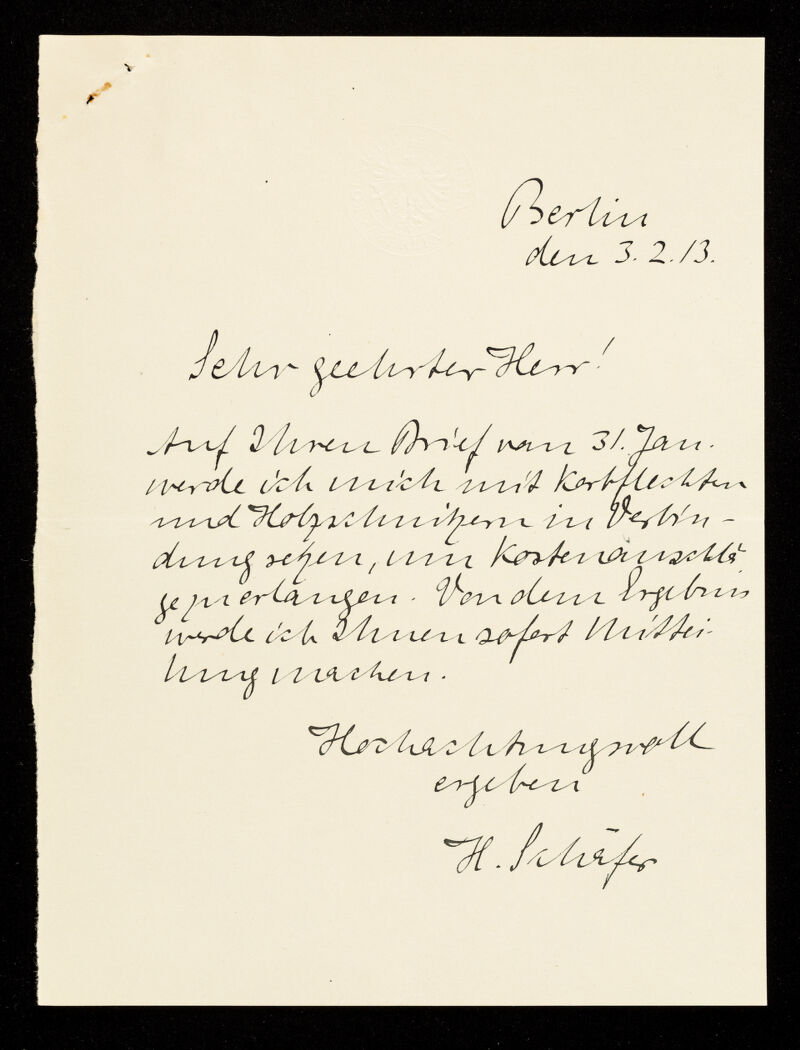 Berlin
den 3. 2. 13.
Sehr geehrter Herr!
Auf Ihren Brief vom 31. Jan.
werde ich mich mit Korbflechten
und Holzschnitzern in Verbin-
dung setzen, um Kostenanschlä
ge zu erlangen. Von dem Ergebnis
werde ich Ihnen sofort Mittei-
lung machen.
Hochachtungsvoll
ergeben
H. Schäfer